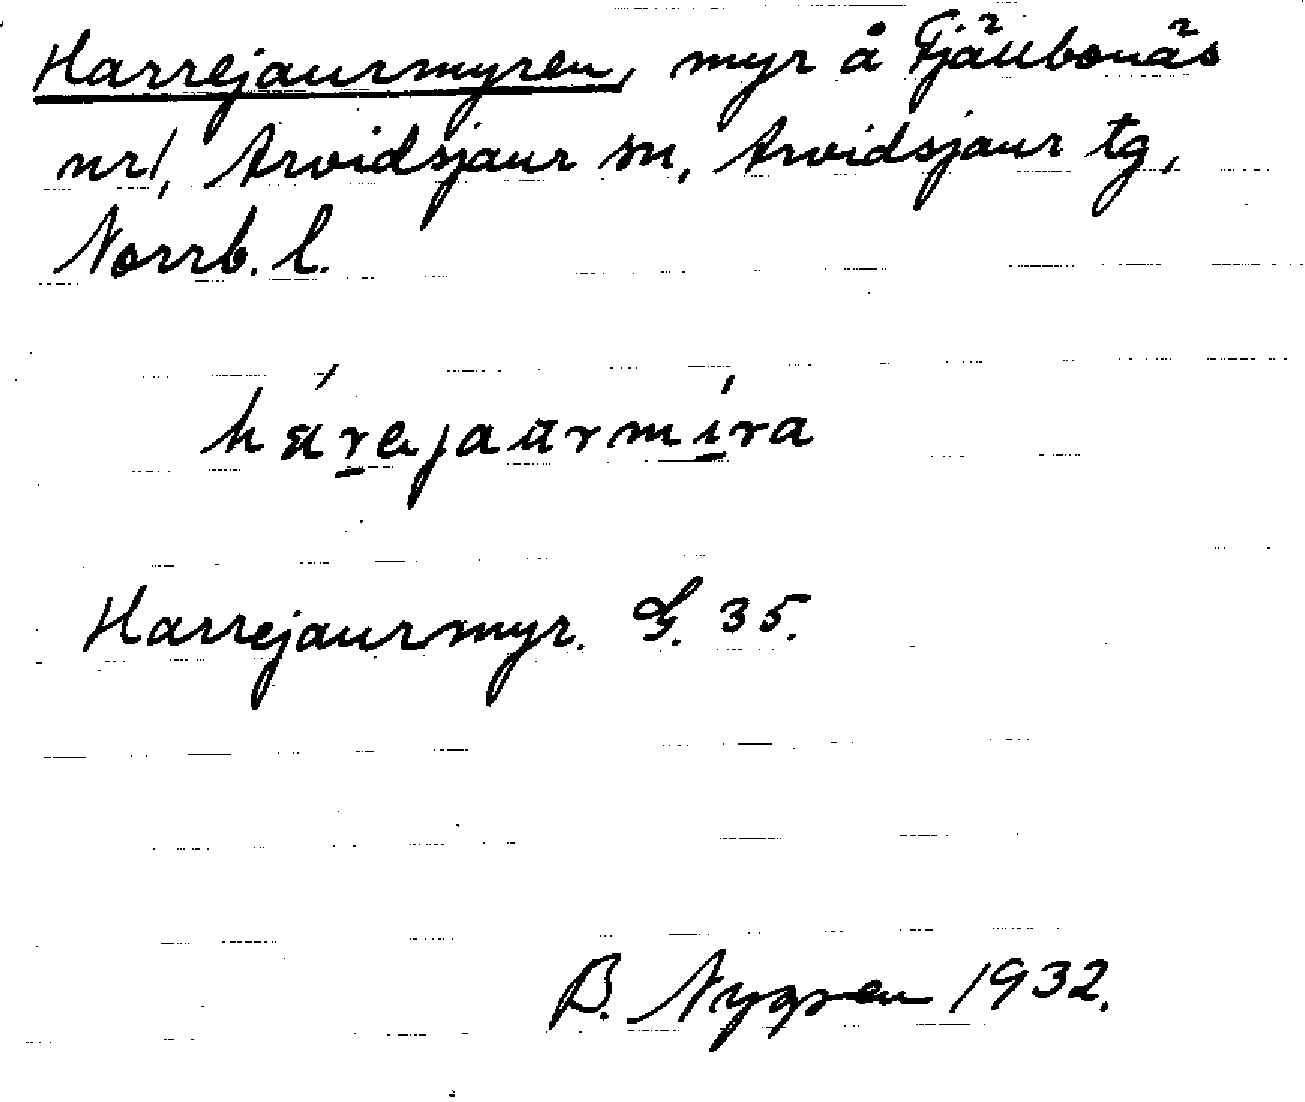 Harrejaurmyren, myr å Fjällbonäs
nr 1, Arvidsjaur sn, Arvidsjaur tg,
Norrb. l.
Harrejaurmyr. G. 35.
B. Nygren 1932.